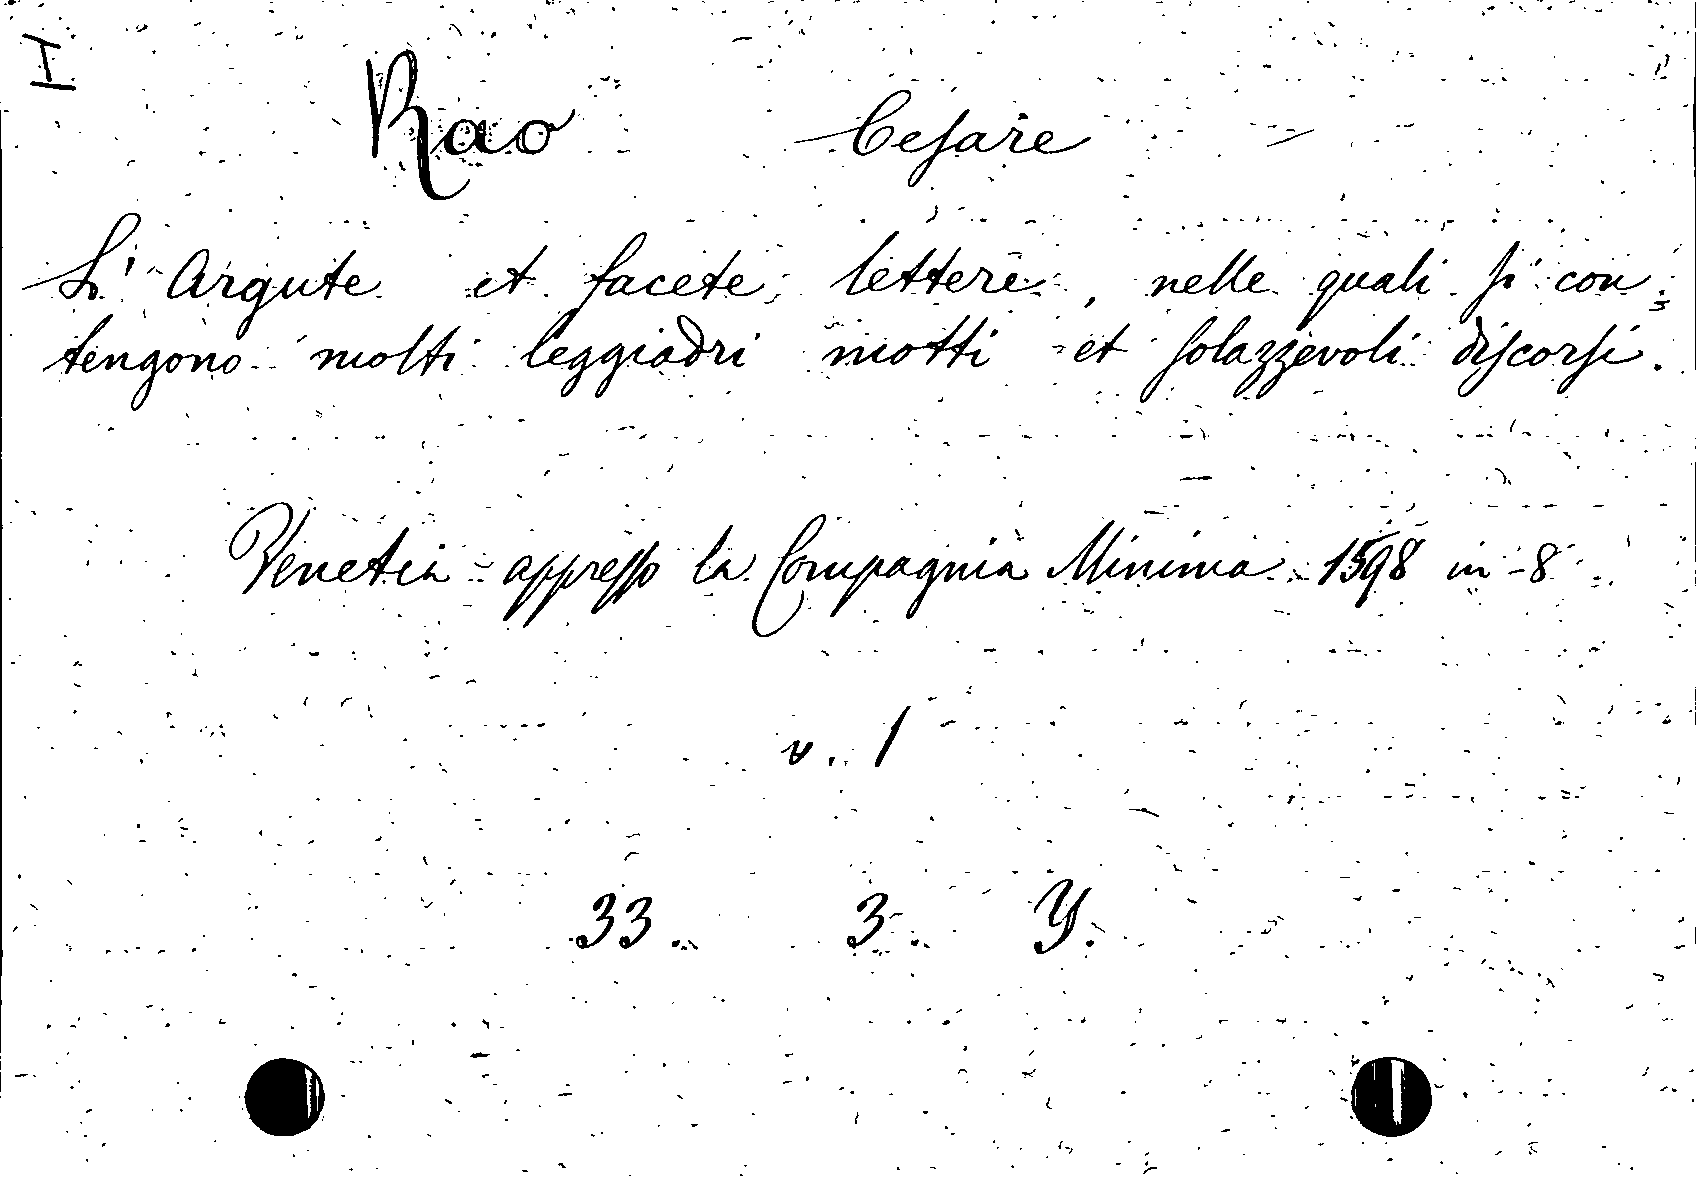 I
Rao Cesare
L' Argute et facete lettere, nelle quali si con=
tengono molti leggiadri motti et solazzevoli discorsi.
Venetia - appresso la Compagnia Minima - 1598 in-8
v. 1
33. 3. Y.